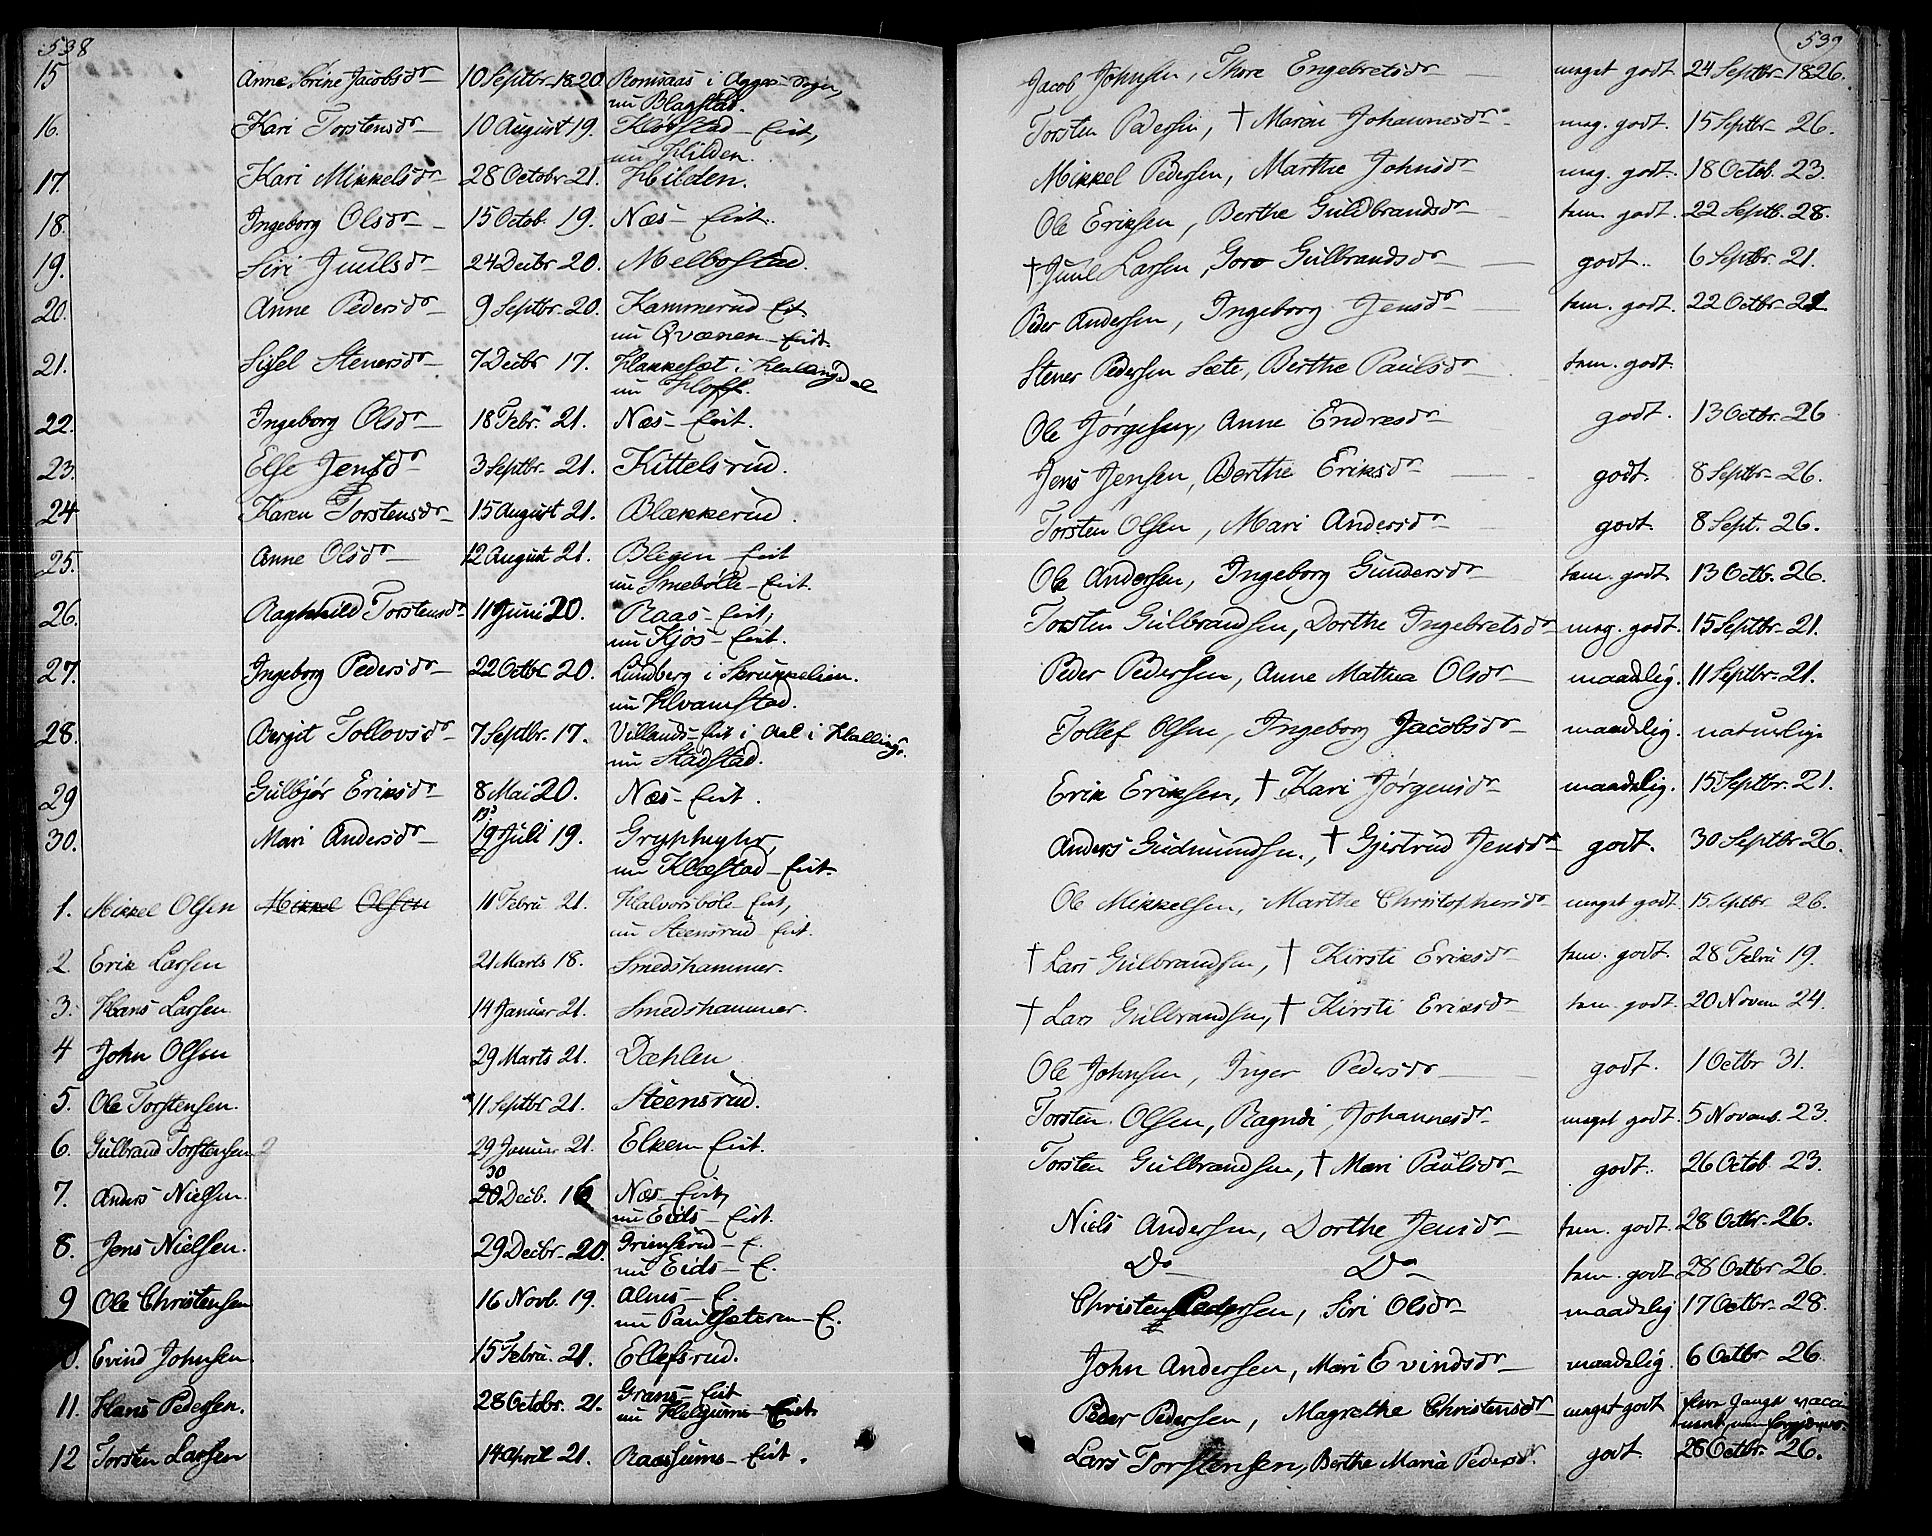 538
15 Anne Sorine Jacobsdr 10 Septbr 1820 Romnæs i Aggers Sogn,
nu Blagstad.
16. Kari Torstensdr 10 August 19. Klæstad Eiet,
nu Hilden.
17. Kari Mikkelsdr 28 Octobr 21. Hilden.
18. Ingeborg Olsdr 15 Octob. 19. Næs Eiet.
19. Siri Juulsdr 24 Decbr 20. Melbostad.
20. Anne Pedersdr 9 Septbr. 20. Kammerud Eiet
nu Qvænen Eiet
21. Sissel Stenersdr 7 Decbr 17. i Hallingdal
nu Hoff.
22. Ingeborg Olsdr 18 Febr. 21. Næs Eiet.
23. Else Jensdr 3 Septbr. 21. Kittelsrud.
24 Karen Torstensdr 15 August 21. Blækkerud.
25. Anne Olsdr 12 August 21. Blegen Eiet
nu Smebölle Eiet.
26. Raghnild Torstensdr 11 Juni 20. Raas Eiet,
nu Kjos Eiet.
27. Ingeborg Pedersdr 22 Octbr 20. Lundberg i Skrukkelien.
nu Hvamstad.
28. Bergit Tollovsdr 7 Septbr. 17. Villands Eiet i Aal i Hallingd.
nu Stadstad.
29 Gulbjør Eriksdr 8 Mai 20. Næs Eiet.
30. Mari Andersdr 19 Juli 19. Gryphughr,
nu Klæstad Eiet.
1. Mikkel Olsen Mikkel Olsen 11 Febru 21. Halvorsböle Eiet,
nu Steensrud Eiet.
2 Erik Larsen 21 Marts 18. Smedshammer.
3. Hans Larsen 14 Januar 21. Smedshammer.
4 John Olsen 29 Marts 21. Dæhlen
5. Ole Torstensen. 11 Septbr 21. Steensrud.
6. Gulbrand Torstensen 29 Januar 21. Elken Eiet.
7. Anders Nielsen 30 20 Decb. 16 Næs Eiet,
nu Eids Eiet.
8. Jens Nielsen. 29 Decbr. 20. Griensrud E.
nu Eids E.
9 Ole Christensen 16 Novb. 19. Alms E.
nu Paulsæteren E.
Evind Johnsen. 15 Febru. 21. Ellefsrud.
11. Hans Pedersen. 28 Octobr. 21. Grans Eiet
nu Helgums Eiet.
12 Torsten Larsen 14 April 21. Raassums Eiet.
539
Jacob Johnsen, Thore Engebretsdr meget godt 24 Septbr 1826.
Torsten Pedersen, † Maria Johannesdr meg. godt. 15 Septbr 26.
Mikkel Pedersen, Marthe Johnsdr meg. godt. 18 Octob. 23.
Ole Eriksen, Berthe Guldbrandsdr tem. godt. 22 Septb. 28.
† Juul Larsen, Goro Gulbrandsdr godt. 6 Septbr. 21.
Peder Andersen, Ingeborg Jensdr tem. godt. 22 Octbr. 21
Stener Pedersen Sæte, Berthe Paulsdr tem. godt.
Ole Jørgensen, Anne Endresdr godt. 13 Octbr. 26
Jens Jensen, Berthe Eriksdr godt. 8 Septbr. 26.
Torsten Olsen, Mari Andersdr godt 8 Sept. 26.
Ole Andersen, Ingeborg Gundersdr tem. godt 13 Octb. 26.
Torsten Gulbrandsen, Dorthe Ingebretsdr meg. godt. 15 Septbr. 21.
Peder Pedersen, Anne Mathea Olsdr maadelig. 11 Septbr. 21.
Tollef Olsen, Ingeborg Jacobsdr maadelig. naturlige
Erik Eriksen, † Kari Jørgensdr maadelig. 15 Septbr. 21.
Anders Gudmundsen, † Gjertrud Jensdr godt. 30 Septbr 26.
Ole Mikkelsen, Marthe Christophersdr meget godt 15. Septbr 26.
† Lars Gulbrandsen, † Kirsti Eriksdr tem. godt. 28 Febru 19.
† Lars Gulbrandsen, † Kirsti Eriksdr tem. godt. 20 Novem 24.
Ole Johnsen, Inger Pedersdr godt. 1 Octbr 31.
Torsten Olsen, Ragndi Johannesdr meget godt 5 Novemb. 23.
Torsten Gulbrandsen, † Mari Paulsdr godt. 26 Octob. 23.
Niels Andersen, Dorthe Jensdr tem. godt. 28 Octbr. 26.
Do Do tem. godt 28 Octbr 26.
Christen Pedersen, Siri Olsdr maadelig 17 Octbr. 28.
John Andersen, Mari Evindsdr maadelig. 6 Octbr 26.
Peder Pedersen, Magrethe Christensdr meget godt flere Gange vacci
neret, men forgjæves
Lars Torstensen, Berthe Maria Pedersdr. godt. 28 Octbr. 26.